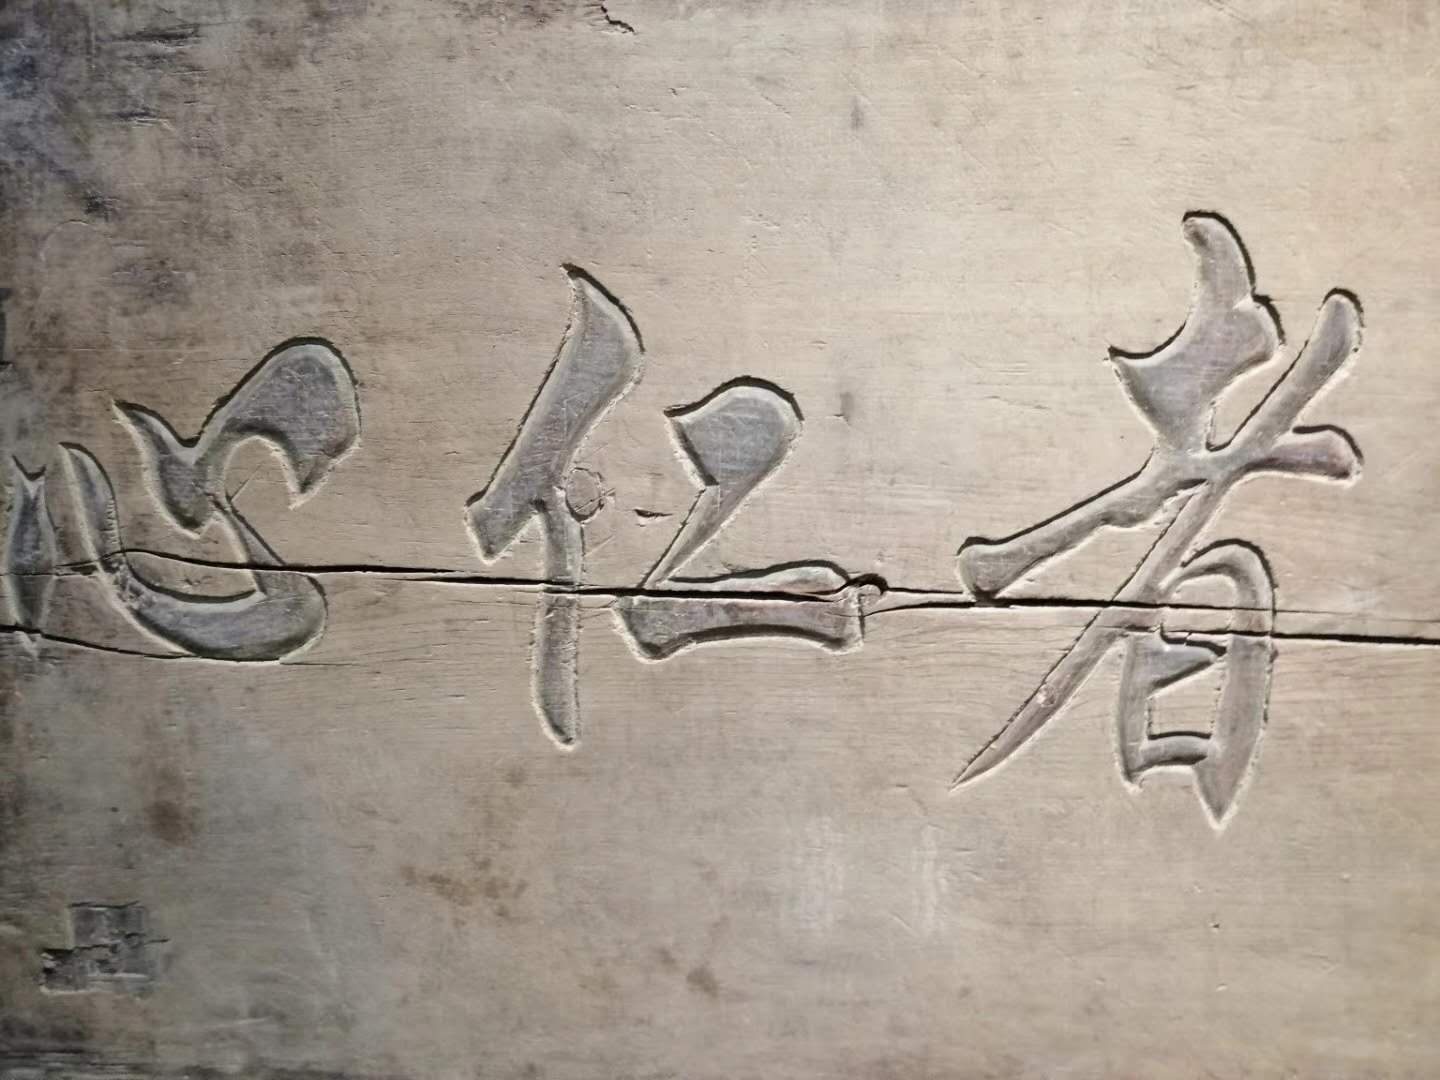 者仁心